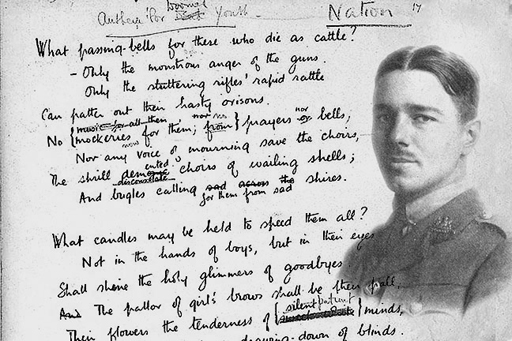 Anthem for Doomed Dead Youth. Nation 17
What passing-bells for these who die as cattle?
- Only the monstrous anger of the guns.
Only the stuttering rifles' rapid rattle
Can patter out their hasty orisons.
music for all them nor nor
No mockeries for them; from prayers or bells,
now
Nor any voice of mourning save the choirs,
ented
The shrill demented choirs of wailing shells;
disconsolate
And bugles calling sad across the shires.
for them from sad
What candles may be held to speed them all?
Not in the hands of boys, but in their eyes
Shall shine the holy glimmers of goodbyes
And The pallor of girls' brows shall be their pall,
silent patient
Their flowers the tenderness of minds,
drawing-down of blinds.